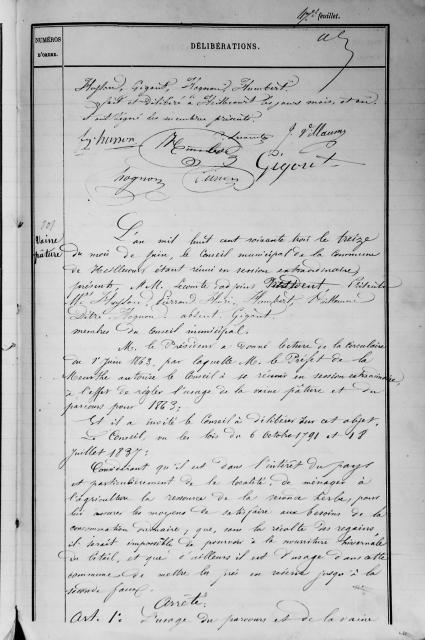 feuillet.
NUMÉROS
D'ORDRE.
DÉLIBÉRATIONS.
Gigant, Hagnard, Humbert,
fait et délibéré à les jours mois, et an.
et ont signé les membres présents.
Husson
Gigout
Vaine
pâture
L'an mil huit cent soixante trois le treize
du mois de Juin, le Conseil municipal de la commune
de étant réuni en session extraordinaire,
présents, M.M. Lecomte adjoint Président,
absent, Gigant,
membres du Conseil municipal.
M. le Président a donné lecture de la circulaire
du 1er Juin 1863, par laquelle M. le Préfet de la
Meurthe autorise le Conseil à se réunir en session extraordinaire,
à l'effet de régler l'usage de la vaine pâture et du
parcours pour 1863;
Et il a invité le Conseil à délibérer sur cet objet.
Le Conseil, vu les lois du 6 octobre 1791 et 18
Juillet 1837:
Considérant qu'il est dans l'intérêt du pays
et particulièrement de la localité de ménager à
l'agriculture la ressource de la seconde herbe, pour
lui assurer les moyens de satisfaire aux besoins de la
consommation ordinaire, que, sans la récolte des regains
il serait impossible de pourvoir à la nourriture hivernale
du bétail, et que d'ailleurs il est d'usage dans cette
commune de mettre les prés en réserve jusqu'à la
seconde faux.
Arrête:
Art. 1er L'usage du parcours et de la vaine